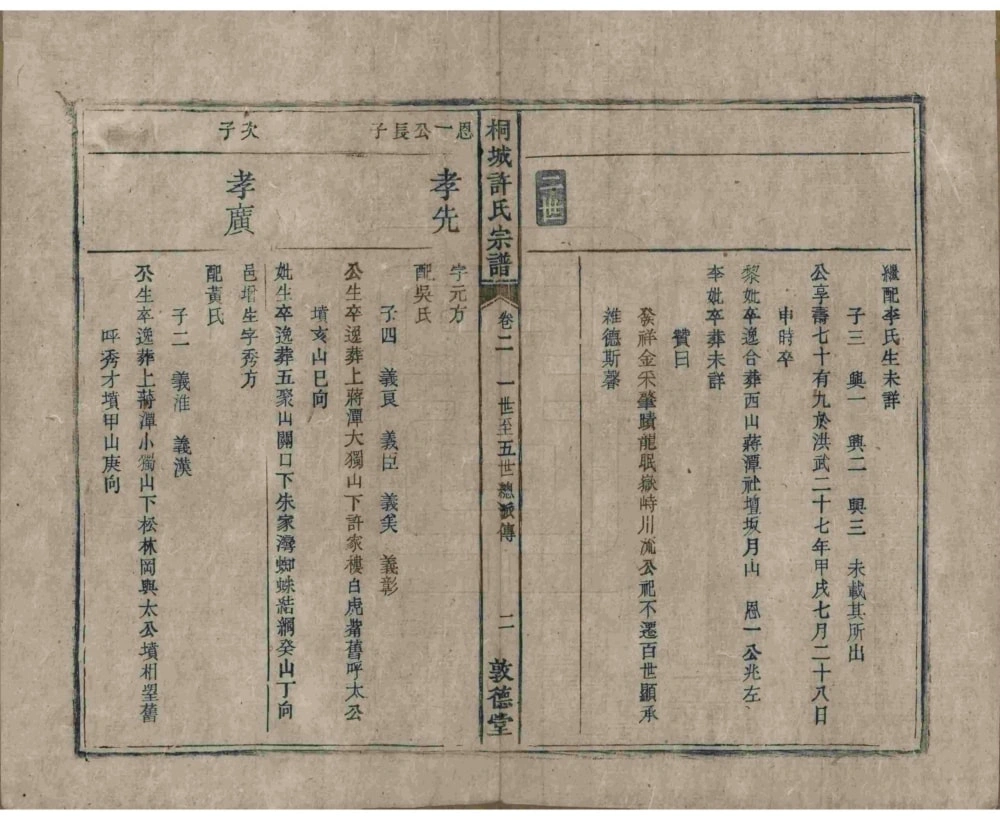 繼配李氏生未詳
子三 興一 興二 興三 未載其所出
公享壽七十有九於洪武二十七年甲戌七月二十八日
申時卒
黎妣卒逸合葬西山蔣潭社壇坂月山 恩一公兆左
李妣卒葬未詳
贊曰
發祥金采肇蹟龍眠嶽峙川流公祀不遷百世顯承
維德斯馨
二世
桐城許氏宗譜
卷二 一世至五世總派傳
二
敦德堂
恩一公長子
孝先
字元方
配吳氏
子四 義良 義臣 義矣 義彰
公生卒逸葬上蔣潭大獨山下許家樓白虎嘴舊呼太公
墳亥山巳向
妣生卒逸葬五聚山關口下朱家灣蜘蛛結網癸山丁向
次子
孝廣
邑增生字秀方
配黃氏
子二 義淮 義漢
公生卒逸葬上蔣潭小獨山下松林岡與太公墳相望舊
呼秀才墳甲山庚向